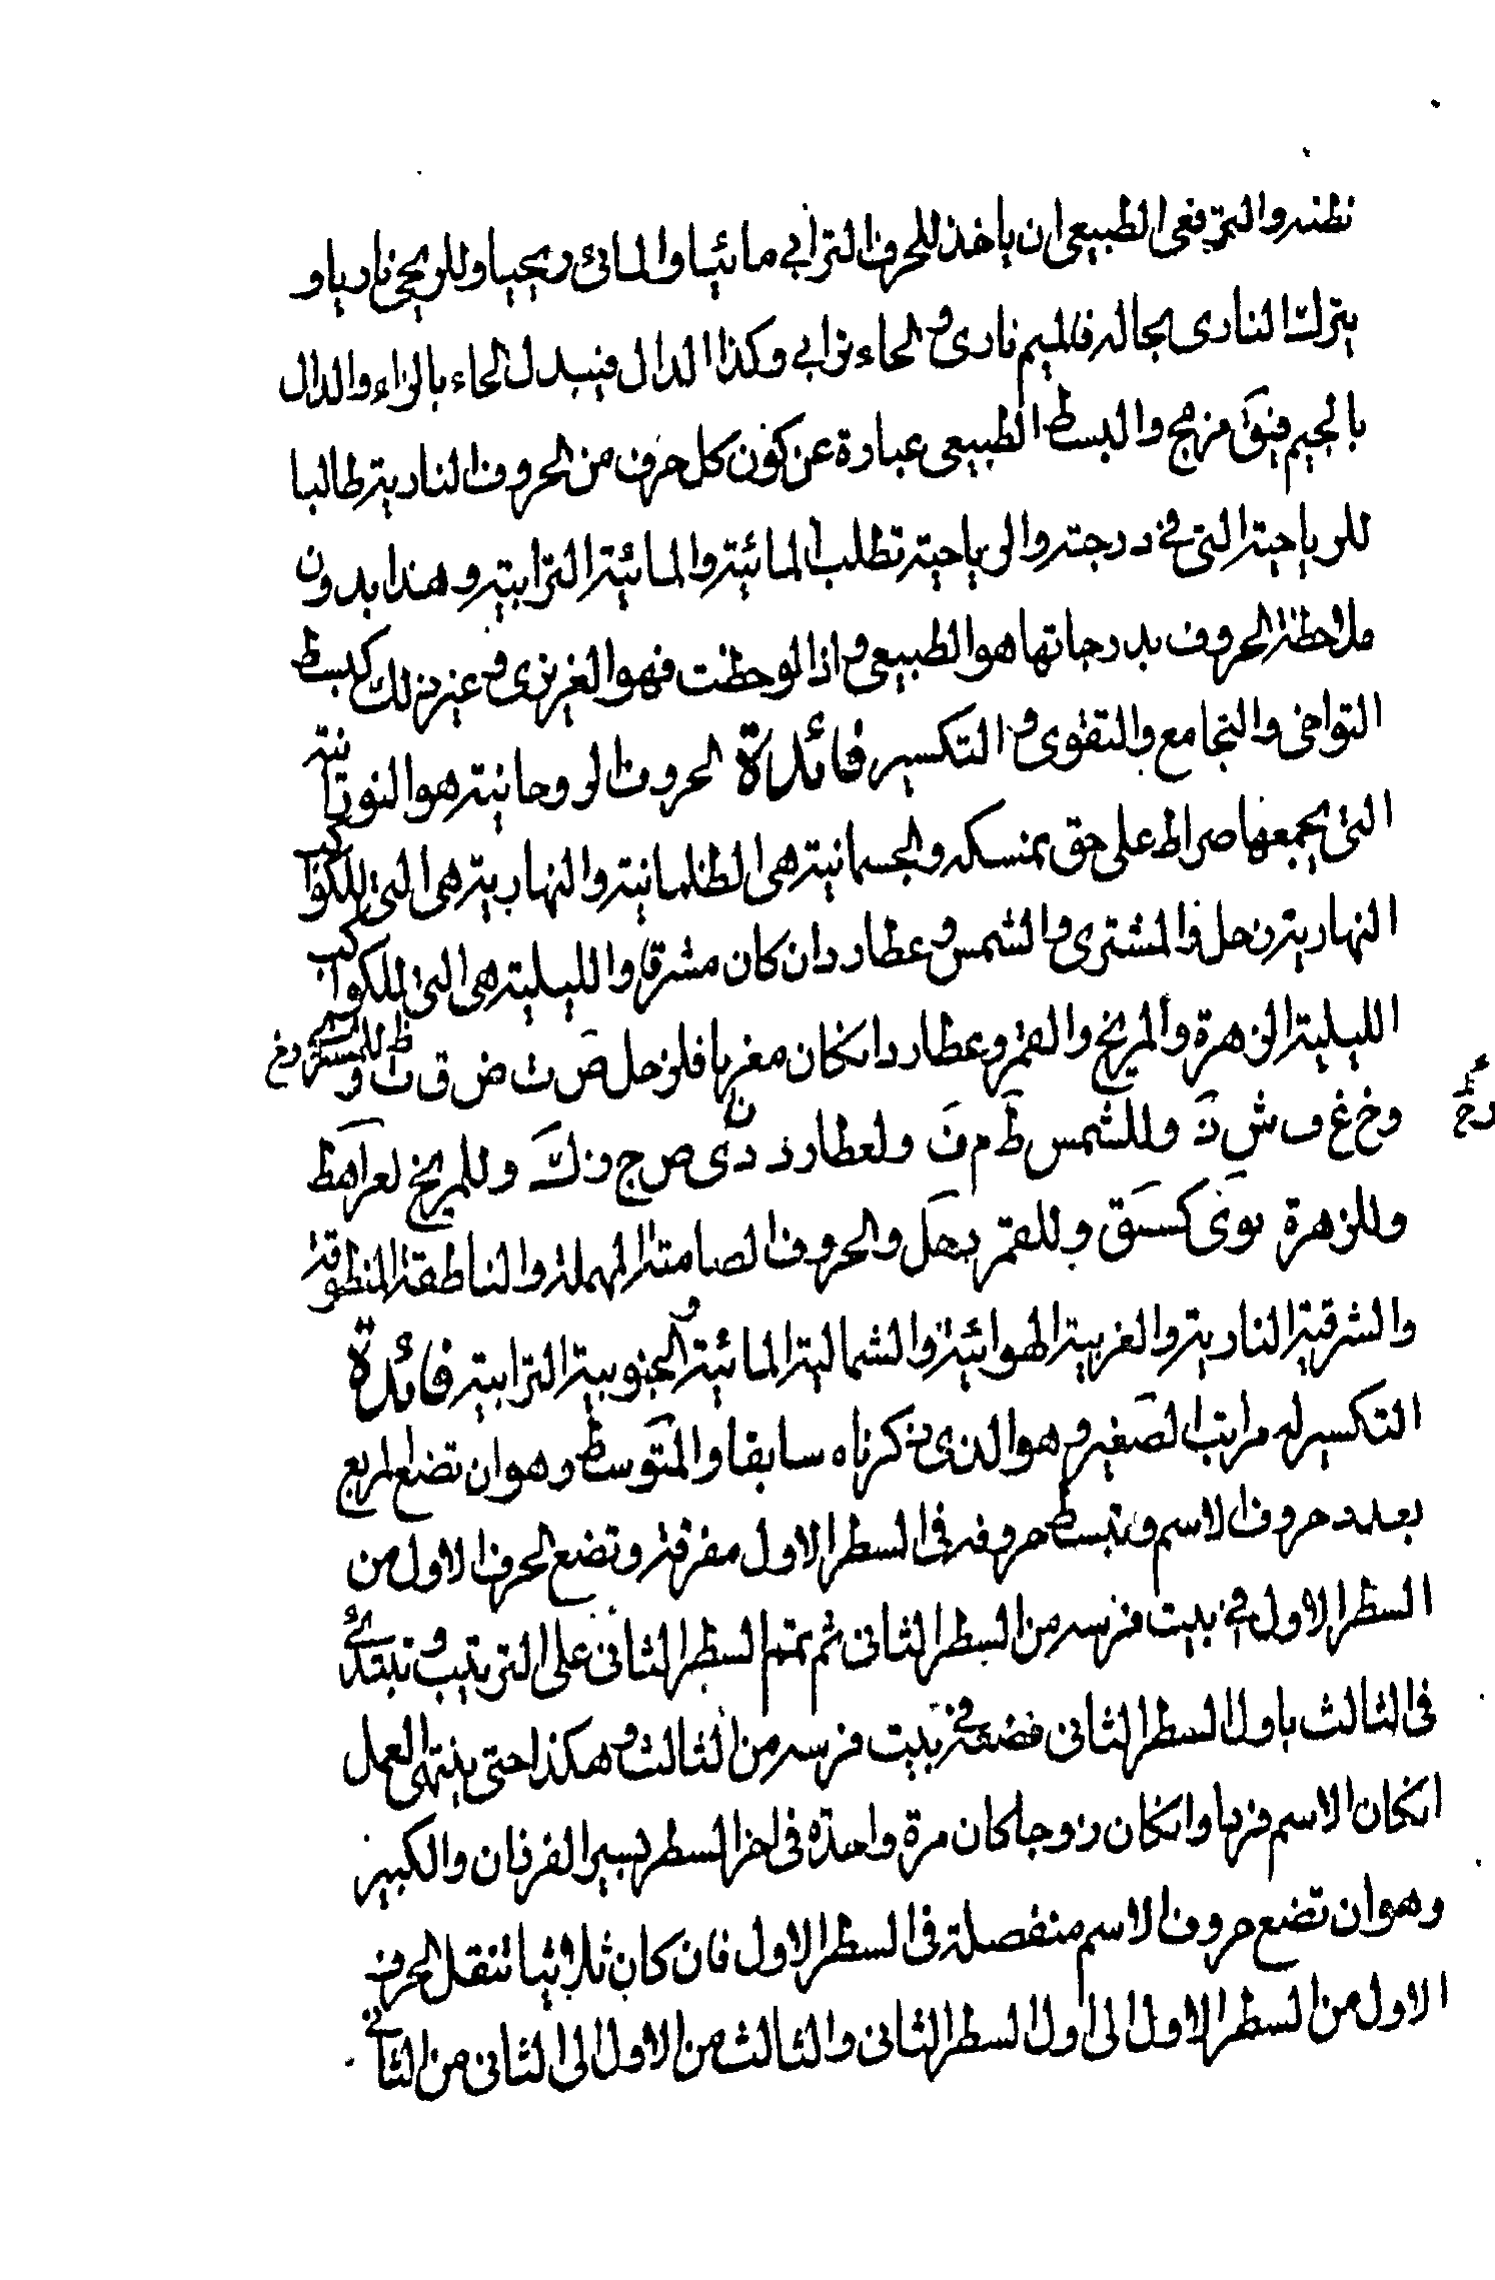 نظنه والترفعى الطبيعى ان ياخذ للحرف الترابي مائيا والمائى ريحيا وللريحى ناريا و
يترك النارى بحاله فالميم نارى و الحاء ترابي وكذا الدال فيبدل الحاء بالزاء والدال
بالجيم فيبقى مزمج والبسط الطبيعى عبارة عن كون كل حرف من الحروف النارية طالبا
للرياحية التى فى درجته والرياحية تطلب المائية والمائية الترابية وهذا بدون
ملاحظة الحروف بدرجاتها هو الطبيعى و اذا لوحظت فهو الغريزى و غير ذلك كبسط
التواخى والتجامع والتقوى و التكسير فائدة الحروف الروحانية هو النورانية
التى يجمعها صراط على حق نمسكه والجسمانية هى الظلمانية والنهارية هى التى للكواكب
النهارية زحل والمشترى والشمس وعطارد ان كان مشرقا والليلية هى التى للكواكب
الليلية الزهرة والمريخ والقمر وعطارد انكان مغربا فلزحل ص ت ض ق ث و ظ للمشترى
وخ غ ف ش ذ وللشمس ط م ف ولعطارد
وللزهرة وللقمر والحروف الصامتة المهملة والناطقة المنطوقة
والشرقية النارية والغربية الهوائية والشمالية المائية و الجنوبية الترابية فائدة
التكسير له مراتب الصغير و هو الذى ذكرناه سابقا والمتوسط وهو ان تضع المربع
بعدد حروف الاسم وتبسط حروفه فى السطر الاول مفرقة وتضع الحرف الاول من
السطر الاول فى بيت فرسه من السطر الثانى ثم تتم السطر الثانى على الترتيب و تبتدئ
فى الثالث باول السطر الثانى فضعه فى بيت فرسه من الثالث و هكذا حتى ينتهى العمل
انكان الاسم فردا وانكان زوجا كان مرة واحدة فى اخر السطر يسير الفرزان والكبير
وهو ان تضع حروف الاسم منفصلة فى السطر الاول فان كان ثلاثيا تنقل الحرف
الاول من السطر الاول الى اول السطر الثانى والثالث من الاول الى الثانى من الثانى